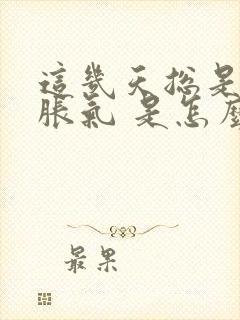 這幾天總是
脹氣 是怎麼
最果